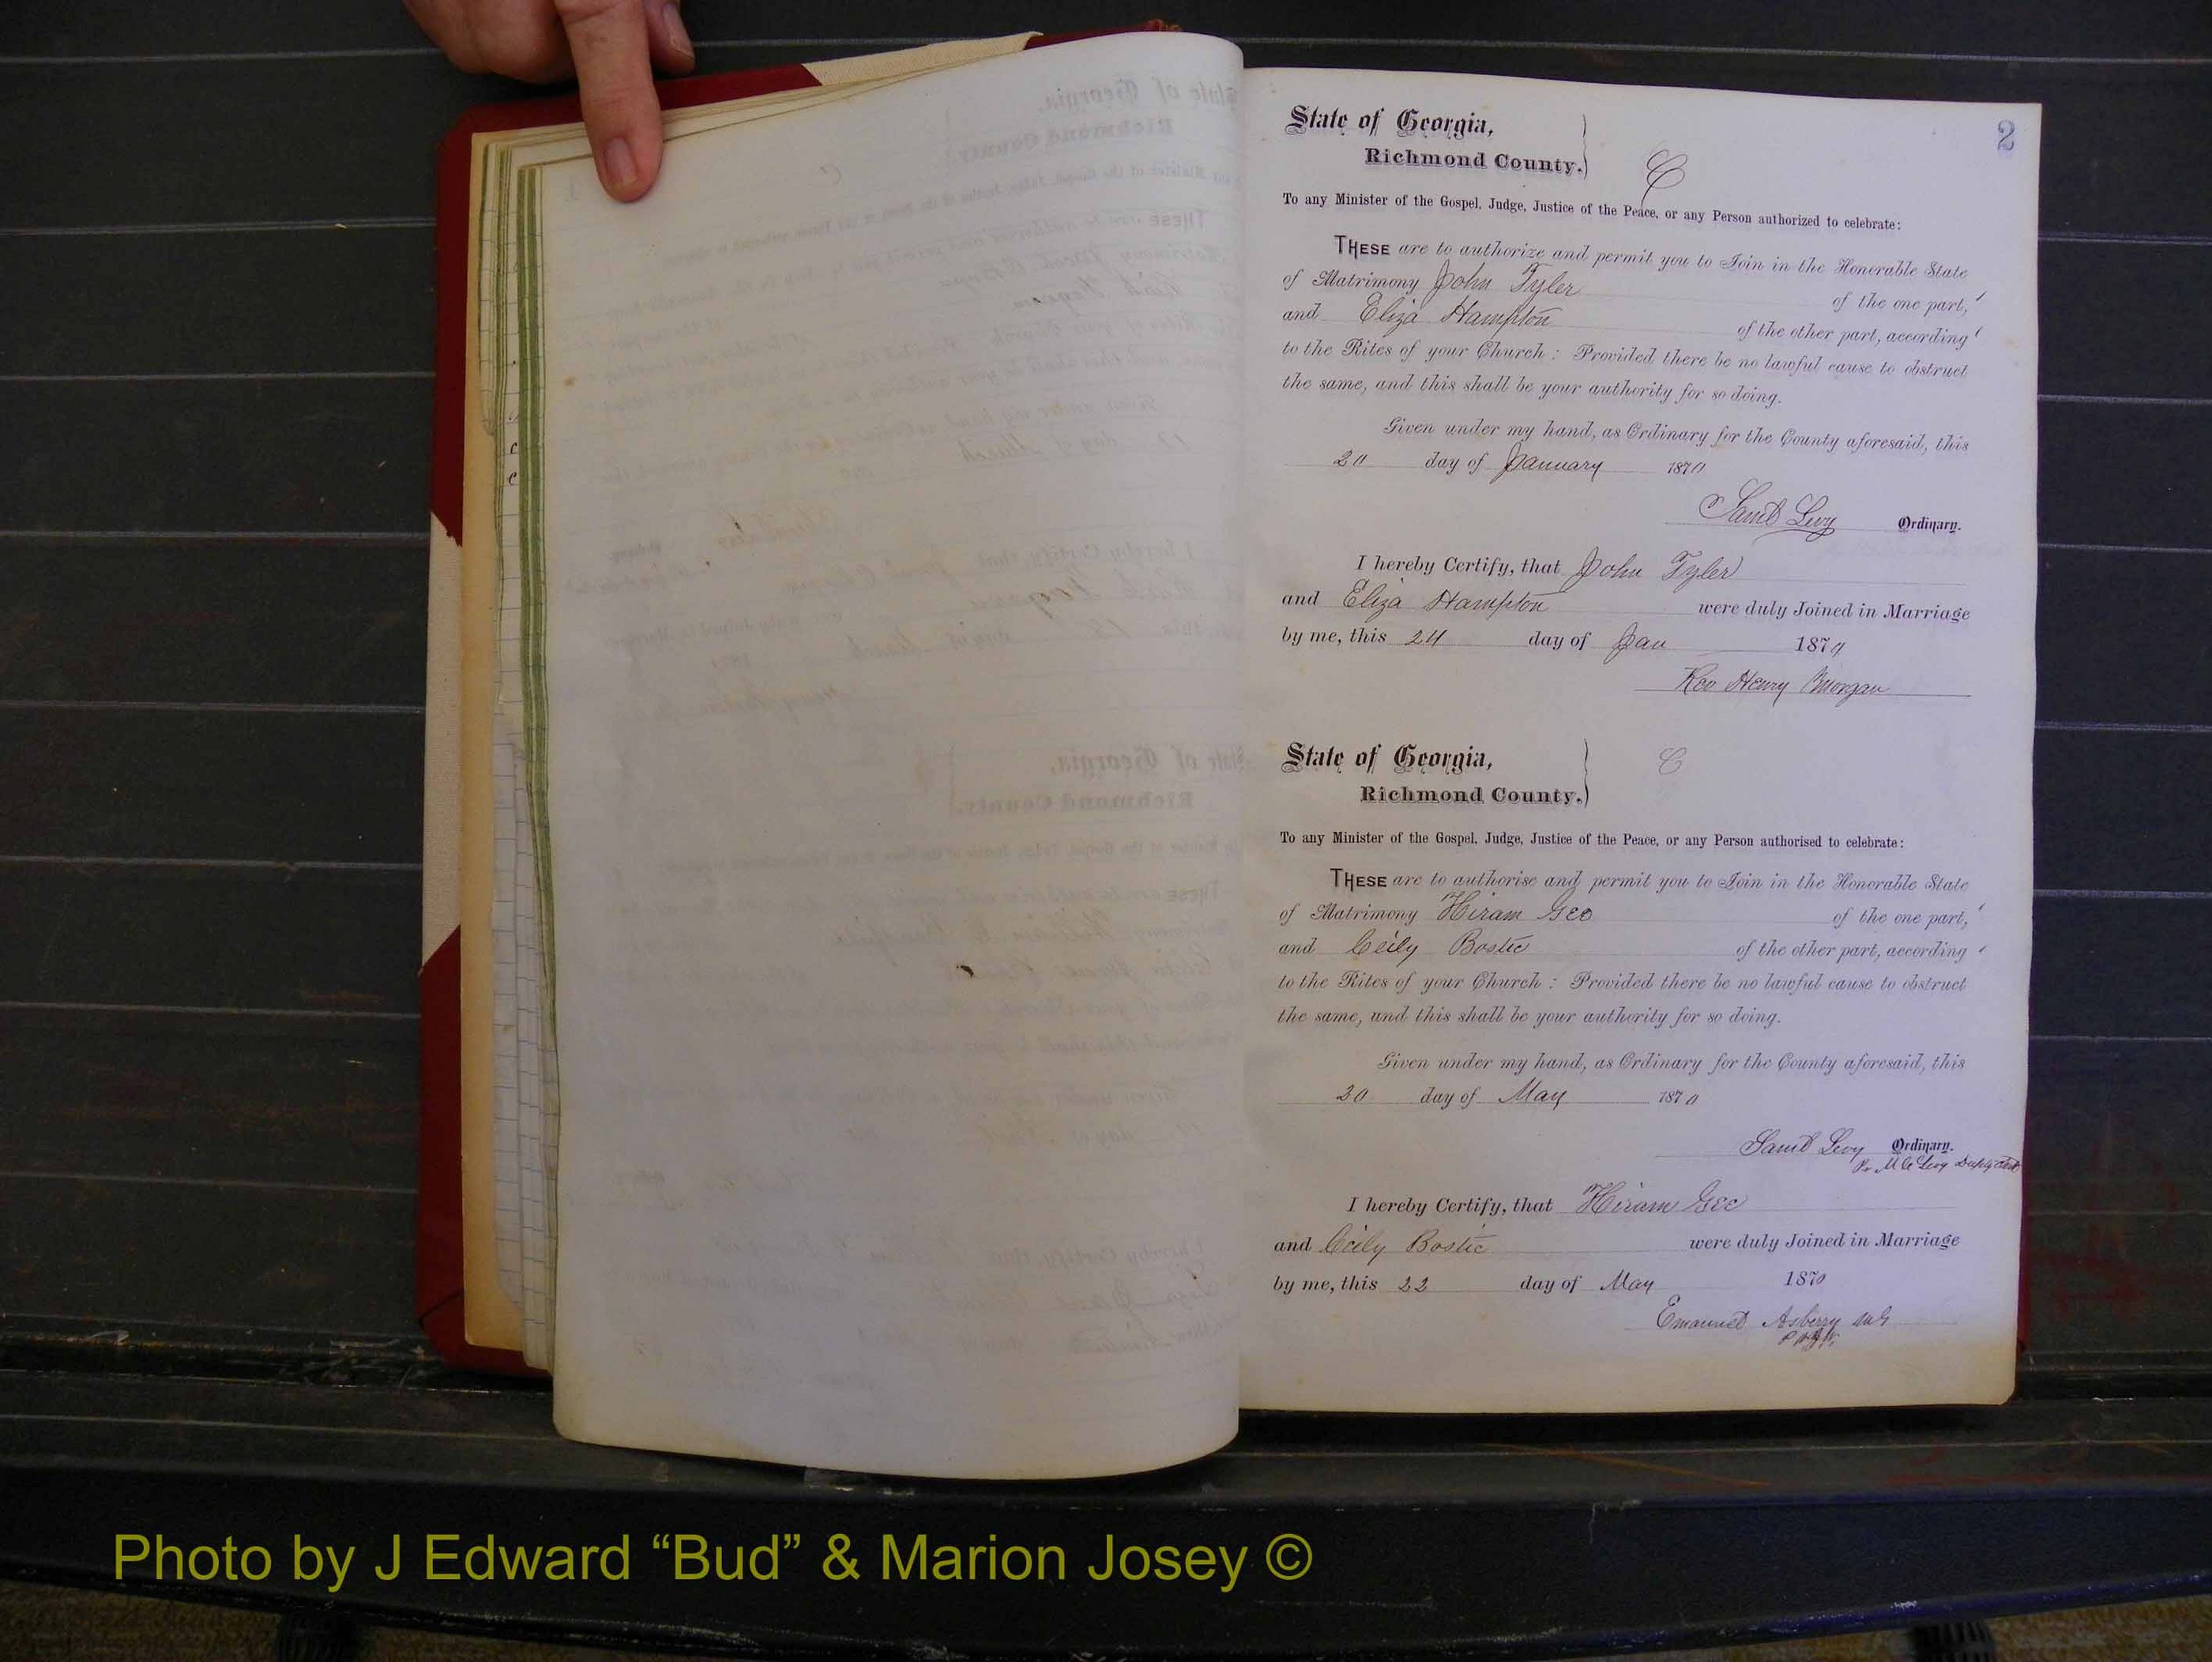 2
State of Georgia,
Richmond County.
C
To any Minister of the Gospel, Judge, Justice of the Peace, or any Person authorized to celebrate:
THESE are to authorize and permit you to Join in the Honorable State
of Matrimony John Tyler of the one part,
and Eliza Hampton of the other part, according
to the Rites of your Church: Provided there be no lawful cause to obstruct
the same, and this shall be your authority for so doing.
Given under my hand, as Ordinary for the County aforesaid, this
20 day of January 1870
Saml Levy Ordinary.
I hereby Certify, that John Tyler
and Eliza Hampton were duly Joined in Marriage
by me, this 24 day of Jan 1870
Rev Henry Morgan
State of Georgia,
Richmond County.
C
To any Minister of the Gospel, Judge, Justice of the Peace, or any Person authorised to celebrate:
THESE are to authorise and permit you to Join in the Honorable State
of Matrimony Hiram Gee of the one part,
and Ceily Bostic of the other part, according
to the Rites of your Church: Provided there be no lawful cause to obstruct
the same, and this shall be your authority for so doing.
Given under my hand, as Ordinary for the County aforesaid, this
20 day of May 1870
Saml Levy Ordinary.
Levy Deputy Clerk
I hereby Certify, that Hiram Gee
and Ceily Bostic were duly Joined in Marriage
by me, this 22 day of May 1870
Emanuel Asberry MG
Photo by J Edward “Bud” & Marion Josey ©